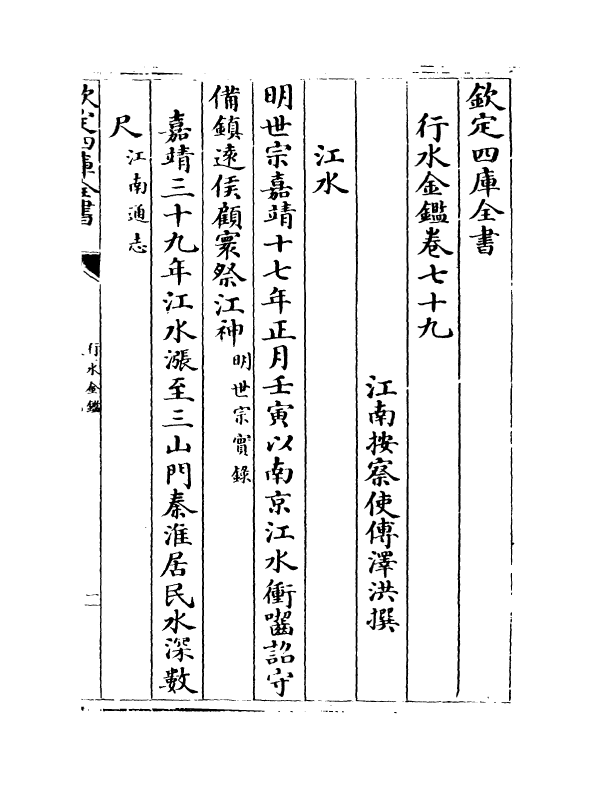 欽定四庫全書
行水金鑑卷七十九
江南按察使傅澤洪撰
江水
明世宗嘉靖十七年正月壬寅以南京江水衝齧詔守
備鎮遠侯顧寰祭江神明世宗實錄
嘉靖三十九年江水漲至三山門秦淮居民水深數
尺江南通志
欽定四庫全書
行水金鑑